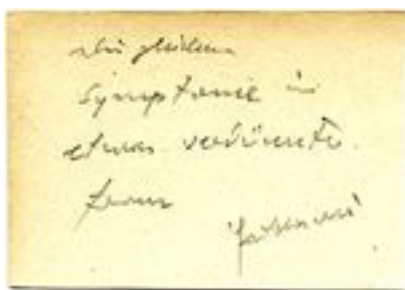 die gleichen
Symptome in
etwas verdünnter
Form